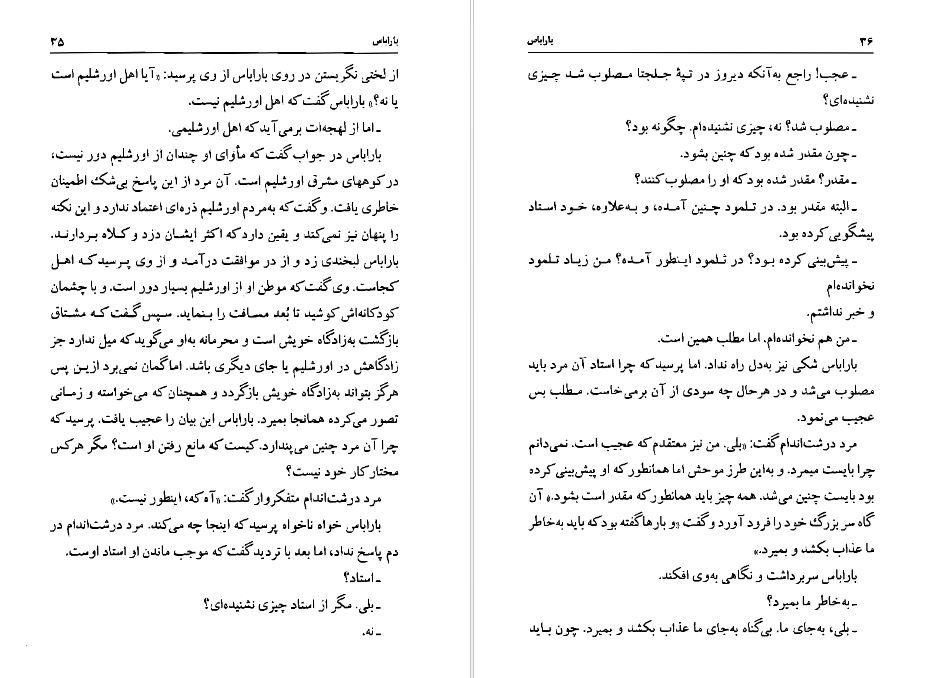 باراباس ۳۵
از لختی نگریستن در روی باراباس از وی پرسید: «آیا اهل اورشلیم است
یا نه؟» باراباس گفت که اهل اورشلیم نیست.
ـ اما از لهجه‌ات برمی‌آید که اهل اورشلیمی.
باراباس در جواب گفت که مأوای او چندان از اورشلیم دور نیست،
در کوههای مشرق اورشلیم است. آن مرد از این پاسخ بی‌شک اطمینان
خاطری یافت. وگفت که به‌مردم اورشلیم ذره‌ای اعتماد ندارد و این نکته
را پنهان نیز نمی‌کند و یقین دارد که اکثر ایشان دزد و کلاه بردارند.
باراباس لبخندی زد و از در موافقت درآمد و از وی پرسید که اهل
کجاست. وی گفت که موطن او از اورشلیم بسیار دور است. و با چشمان
کودکانه‌اش کوشید تا بُعد مسافت را بنماید. سپس گفت که مشتاق
بازگشت به‌زادگاه خویش است و محرمانه به‌او می‌گوید که میل ندارد جز
زادگاهش در اورشلیم یا جای دیگری باشد. اما گمان نمی‌برد ازین پس
هرگز بتواند به‌زادگاه خویش بازگردد و همچنان که می‌خواسته و زمانی
تصور می‌کرده همانجا بمیرد. باراباس این بیان را عجیب یافت. پرسید که
چرا آن مرد چنین می‌پندارد. کیست که مانع رفتن او است؟ مگر هرکس
مختار کار خود نیست؟
مرد درشت‌اندام متفکروار گفت: «آه که، اینطور نیست.»
باراباس خواه ناخواه پرسید که اینجا چه می‌کند. مرد درشت‌اندام در
دم پاسخ نداد، اما بعد با تردید گفت که موجب ماندن او استاد اوست.
ـ استاد؟
ـ بلی. مگر از استاد چیزی نشنیده‌ای؟
ـ نه.
۳۶ باراباس
ـ عجب! راجع به‌آنکه دیروز در تپهٔ جلجتا مصلوب شد چیزی
نشنیده‌ای؟
ـ مصلوب شد؟ نه، چیزی نشنیده‌ام. چگونه بود؟
ـ چون مقدر شده بود که چنین بشود.
ـ مقدر؟ مقدر شده بود که او را مصلوب کنند؟
ـ البته مقدر بود. در تلمود چنین آمده، و به‌علاوه، خود استاد
پیشگویی کرده بود.
ـ پیش‌بینی کرده بود؟ در تلمود اینطور آمده؟ من زیاد تلمود
نخوانده‌ام
و خبر نداشتم.
ـ من هم نخوانده‌ام. اما مطلب همین است.
باراباس شکی نیز به‌دل راه نداد. اما پرسید که چرا استاد آن مرد باید
مصلوب می‌شد و در هرحال چه سودی از آن برمی‌خاست. مطلب بس
عجیب می‌نمود.
مرد درشت‌اندام گفت: «بلی. من نیز معتقدم که عجیب است. نمی‌دانم
چرا بایست میمرد. و به‌این طرز موحش اما همانطور که او پیش‌بینی کرده
بود بایست چنین می‌شد. همه چیز باید همانطور که مقدر است بشود.» آن
گاه سر بزرگ خود را فرود آورد و گفت «و بارها گفته بود که باید به‌خاطر
ما عذاب بکشد و بمیرد.»
باراباس سربرداشت و نگاهی به‌وی افکند.
ـ به‌خاطر ما بمیرد؟
ـ بلی، به‌جای ما. بی‌گناه به‌جای ما عذاب بکشد و بمیرد. چون باید